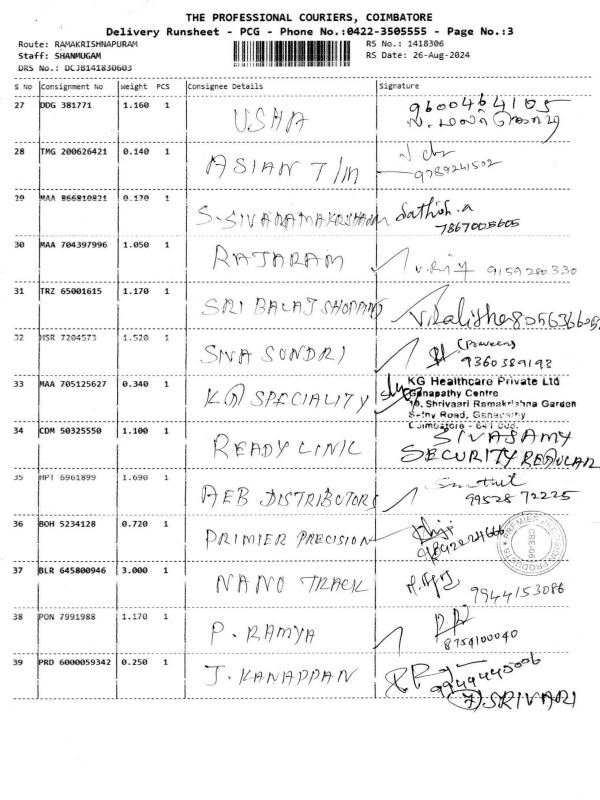 THE PROFESSIONAL COURIERS, COIMBATORE
Delivery Runsheet - PCG - Phone No.:0422-3505555 - Page No.:3
Route: RAMAKRISHNAPURAM RS No.: 1418306
Staff: SHANMUGAM RS Date: 26-Aug-2024
DRS No.: DCJB141830603
S No Consignment No Weight PCS Consignee Details Signature
27 DDG 381771 1.160 1 USHA 9600464105
28 TMG 200626421 0.140 1 ASIAN T/M 9789241502
29 MAA 866810821 0.170 1 S-SIVARAMAKRISHNAN Sathish.a
7867005605
30 MAA 704397996 1.050 1 RAJARAM 9159280330
31 TRZ 65001615 1.170 1 SRI BALAJ SHOPPING
32 HSR 7204573 1.520 1 SIVA SUNDRI (Praveen)
9360389198
33 MAA 705125627 0.340 1 KG SPECIALITY KG Healthcare Private Ltd
Ganapathy Centre
10, Shrivaari Ramakrishna Garden
Sathy Road, Ganapathy
Coimbatore - 641 006.
34 CDM 50325550 1.100 1 READY LINIC SIVASAMY
SECURITY
35 MPT 6961899 1.690 1 AEB DISTRIBUTORS
99528 72225
36 BOH 5234128 0.720 1 PRIMIER PRECISION
PREMIER PRECISION PRODUCTS
CBE-06
37 BLR 645800946 3.000 1 NANO TRACK 9944153086
38 PON 7991988 1.170 1 P. RAMYA
8754100040
39 PRD 6000059342 0.250 1 J. KANAPPAN
9949445006
7) SRIVARI